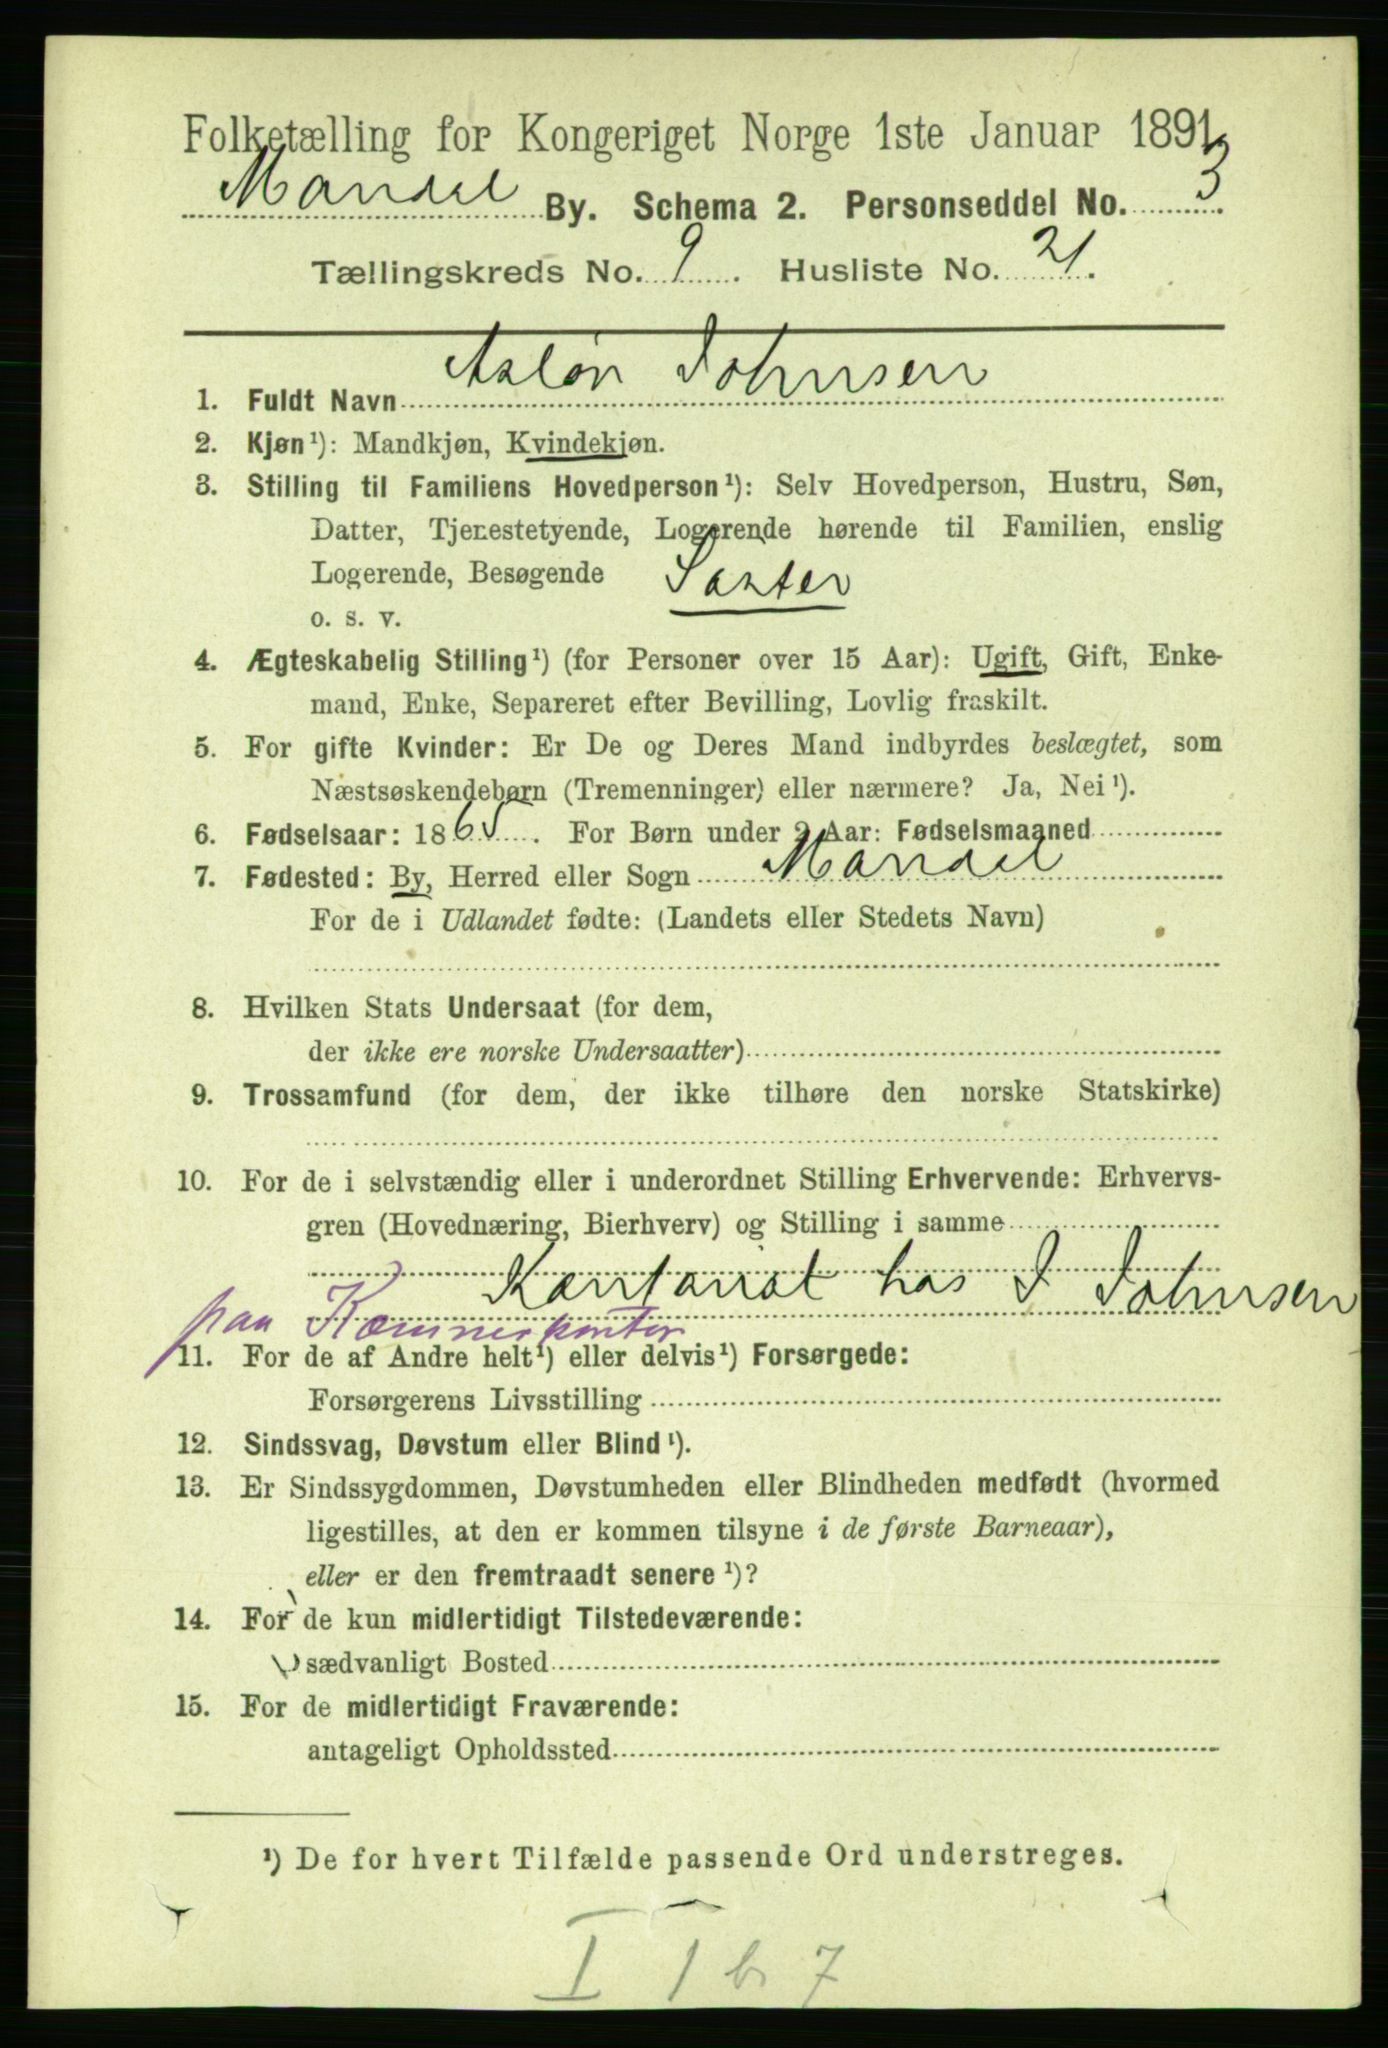 Folketælling for Kongeriget Norge 1ste Januar 1891.
Mandal By. Schema 2. Personseddel No. 3
Tællingskreds No. 9. Husliste No. 21.
1. Fuldt Navn Johnsen
2. Kjøn¹): Mandkjøn, Kvindekjøn.
3. Stilling til Familiens Hovedperson¹): Selv Hovedperson, Hustru, Søn,
Datter, Tjenestetyende, Logerende hørende til Familien, enslig
Logerende, Besøgende
o. s. v.
4. Ægteskabelig Stilling¹) (for Personer over 15 Aar): Ugift, Gift, Enke-
mand, Enke, Separeret efter Bevilling, Lovlig fraskilt.
5. For gifte Kvinder: Er De og Deres Mand indbyrdes beslægtet, som
Næstsøskendebørn (Tremenninger) eller nærmere? Ja, Nei¹).
6. Fødselsaar: 1865. For Børn under 2 Aar: Fødselsmaaned
7. Fødested: By, Herred eller Sogn Mandal
For de i Udlandet fødte: (Landets eller Stedets Navn)
8. Hvilken Stats Undersaat (for dem,
der ikke ere norske Undersaatter)
9. Trossamfund (for dem, der ikke tilhøre den norske Statskirke)
10. For de i selvstændig eller i underordnet Stilling Erhvervende: Erhvervs-
gren (Hovednæring, Bierhverv) og Stilling i samme
hos J Johnsen
paa Kæmnerkontor
11. For de af Andre helt¹) eller delvis¹) Forsørgede:
Forsørgerens Livsstilling
12. Sindssvag, Døvstum eller Blind¹).
13. Er Sindssygdommen, Døvstumheden eller Blindheden medfødt (hvormed
ligestilles, at den er kommen tilsyne i de første Barneaar),
eller er den fremtraadt senere¹)?
14. For de kun midlertidigt Tilstedeværende:
sædvanligt Bosted
15. For de midlertidigt Fraværende:
antageligt Opholdssted
¹) De for hvert Tilfælde passende Ord understreges.
I 1 b 7